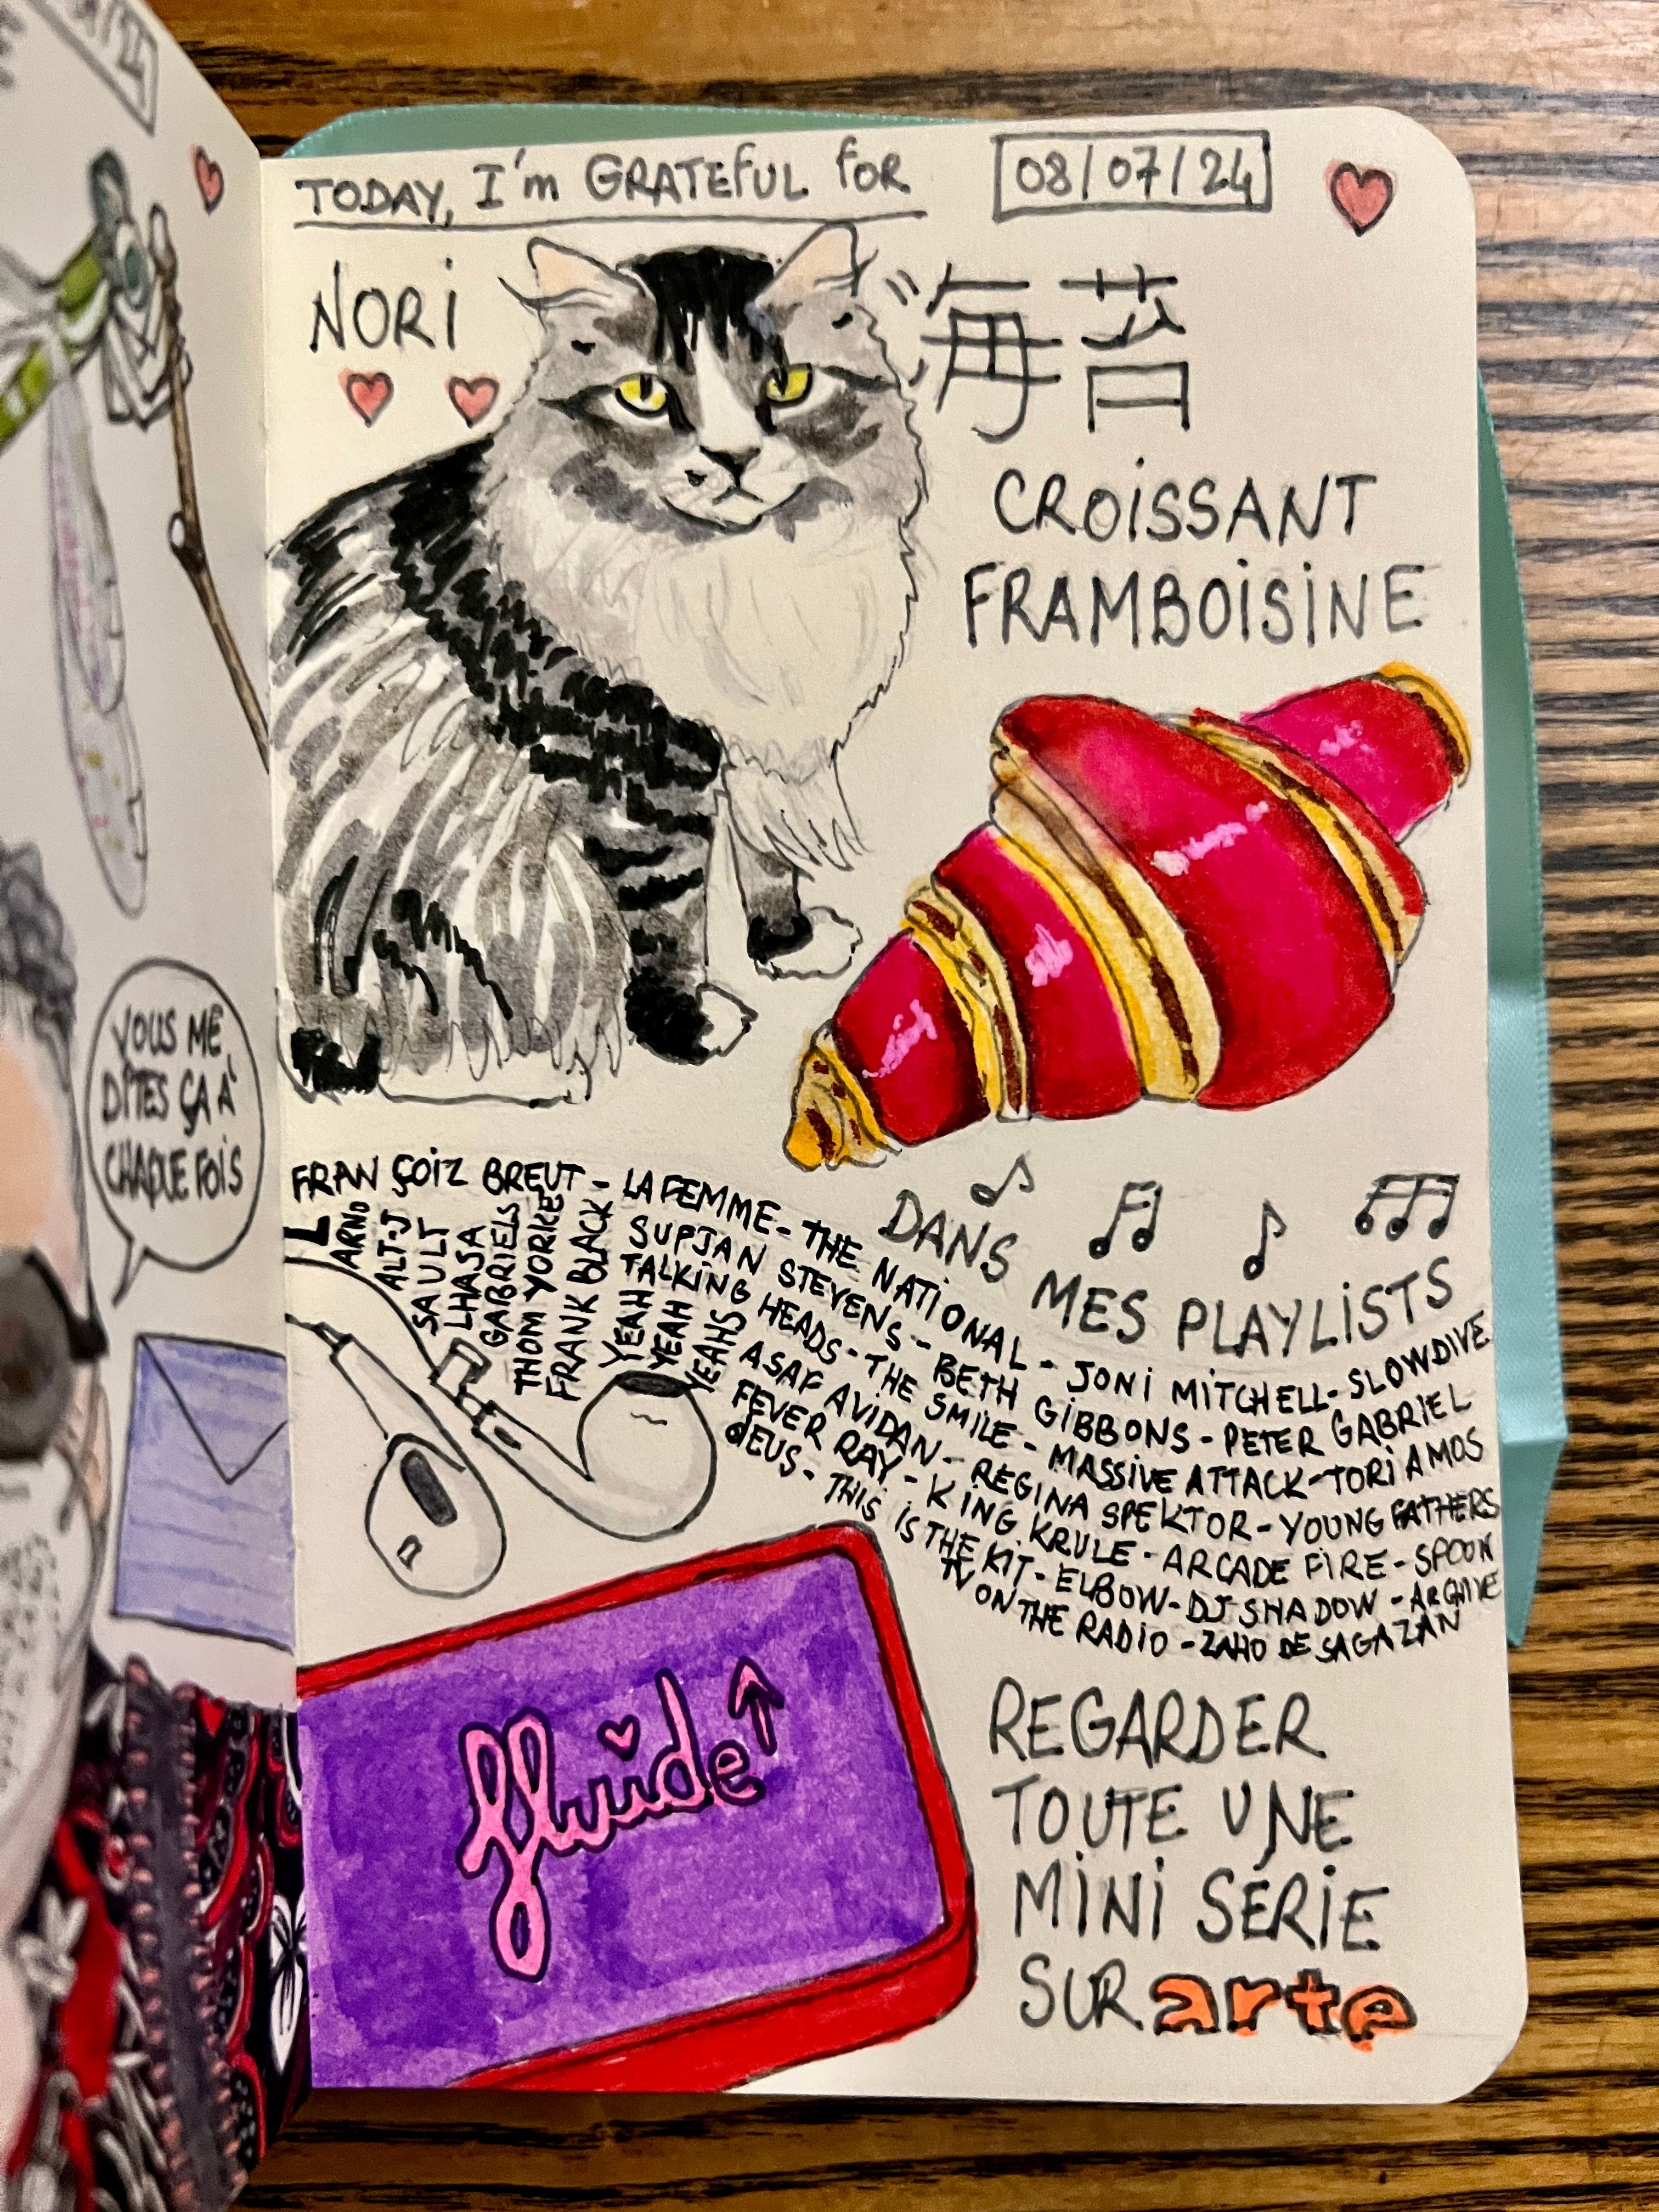 TODAY, I'm GRATEFUL for
08/07/24
NORI
海苔
CROISSANT
FRAMBOISINE
VOUS ME
DITES ÇA À
CHAQUE FOIS
DANS MES PLAYLISTS
FRANÇOIZ BREUT - LA FEMME - THE NATIONAL - JONI MITCHELL - SLOWDIVE
SUFJAN STEVENS - BETH GIBBONS - PETER GABRIEL
TALKING HEADS - THE SMILE - MASSIVE ATTACK - TORI AMOS
ASAF AVIDAN - REGINA SPEKTOR - YOUNG FATHERS
FEVER RAY - KING KRULE - ARCADE FIRE - SPOON
dEUS - THIS IS THE KIT - ELBOW - DJ SHADOW - ARCHIVE
TV ON THE RADIO - ZAHO DE SAGAZAN
L
ARNO
ALT-J
SAULT
LHASA
GABRIELS
THOM YORKE
FRANK BLACK
YEAH
YEAH
YEAHS
fluide
REGARDER
TOUTE UNE
MINI SÉRIE
SUR arte